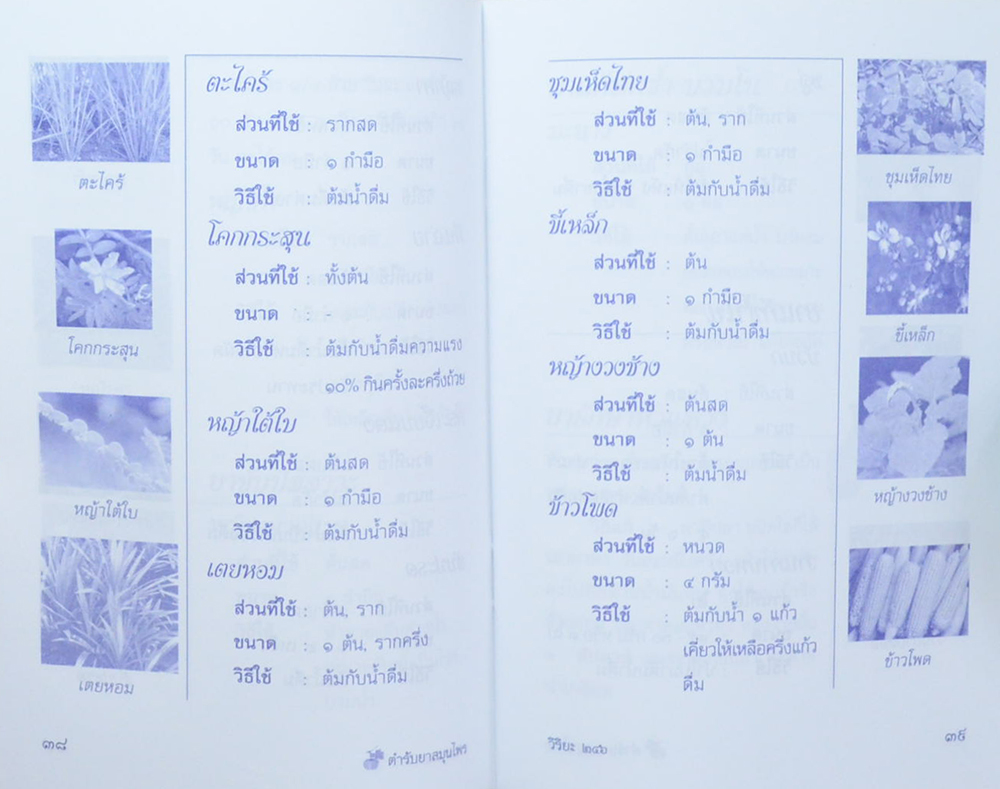 ตะไคร้
ส่วนที่ใช้ : รากสด
ขนาด : ๑ กำมือ
วิธีใช้ : ต้มกับน้ำดื่ม
โคกกระสุน
ส่วนที่ใช้ : ทั้งต้น
ขนาด : -
วิธีใช้ : ต้มกับน้ำดื่มความแรง
๑๐% กินครั้งละครึ่งถ้วย
หญ้าใต้ใบ
ส่วนที่ใช้ : ต้นสด
ขนาด : ๑ กำมือ
วิธีใช้ : ต้มกับน้ำดื่ม
เตยหอม
ส่วนที่ใช้ : ต้น, ราก
ขนาด : ๑ ต้น, รากครึ่ง
วิธีใช้ : ต้มกับน้ำดื่ม
ตะไคร้
โคกกระสุน
หญ้าใต้ใบ
เตยหอม
๓๘
ตำรับยาสมุนไพร
ชุมเห็ดไทย
ส่วนที่ใช้ : ต้น, ราก
ขนาด : ๑ กำมือ
วิธีใช้ : ต้มกับน้ำดื่ม
ขี้เหล็ก
ส่วนที่ใช้ : ต้น
ขนาด : ๑ กำมือ
วิธีใช้ : ต้มกับน้ำดื่ม
หญ้างวงช้าง
ส่วนที่ใช้ : ต้นสด
ขนาด : ๑ ต้น
วิธีใช้ : ต้มน้ำดื่ม
ข้าวโพด
ส่วนที่ใช้ : หนวด
ขนาด : ๔ กรัม
วิธีใช้ : ต้มกับน้ำ ๑ แก้ว
เคี่ยวให้เหลือครึ่งแก้ว
ดื่ม
ชุมเห็ดไทย
ขี้เหล็ก
หญ้างวงช้าง
ข้าวโพด
วิริยะ ๒๔๖
๓๙